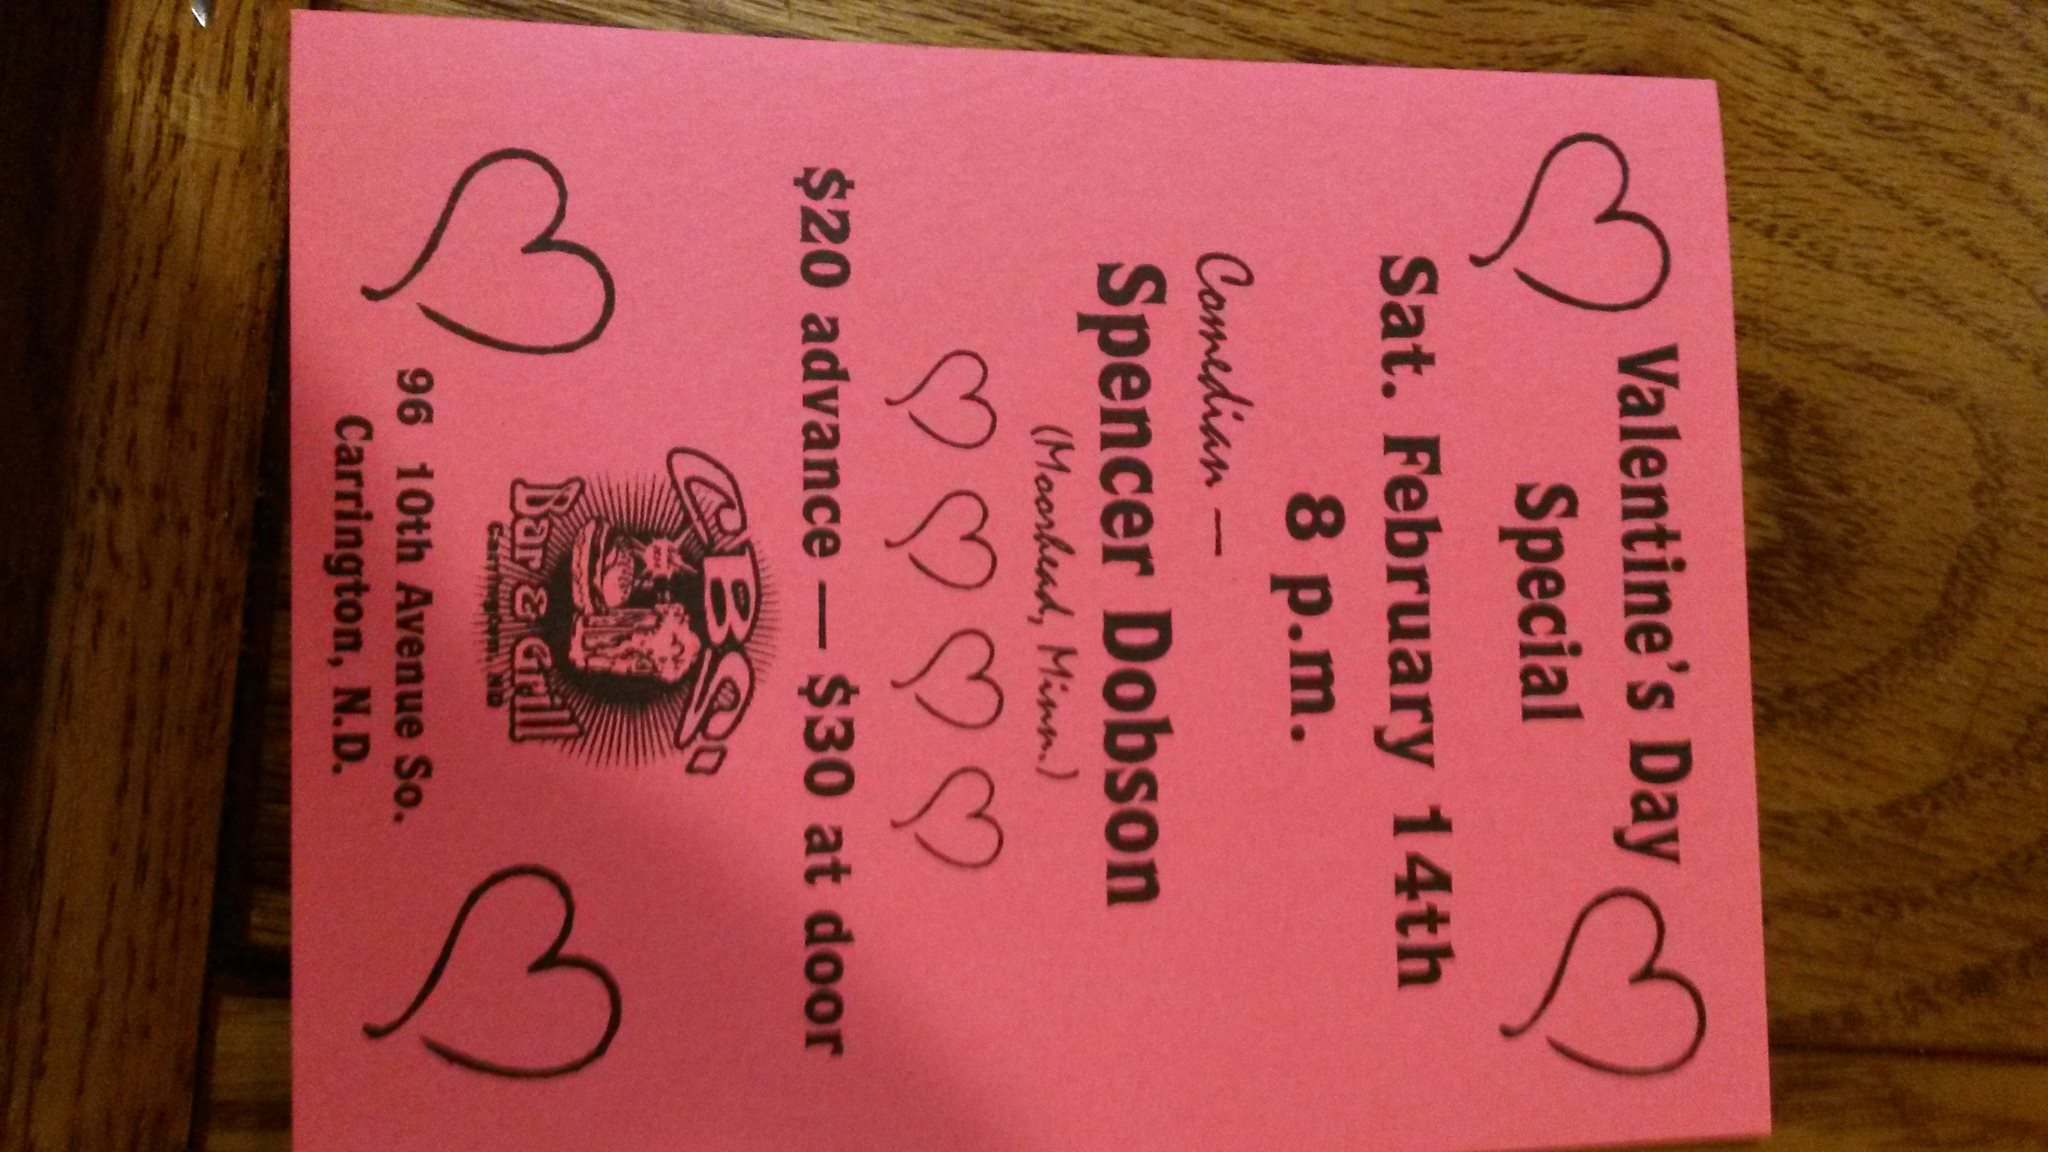 Valentine's Day
Special
Sat. February 14th
8 p.m.
Comedian —
Spencer Dobson
(Moorhead, Minn.)
$20 advance — $30 at door
CBG's
Bar & Grill
Carrington, ND
96 10th Avenue So.
Carrington, N.D.